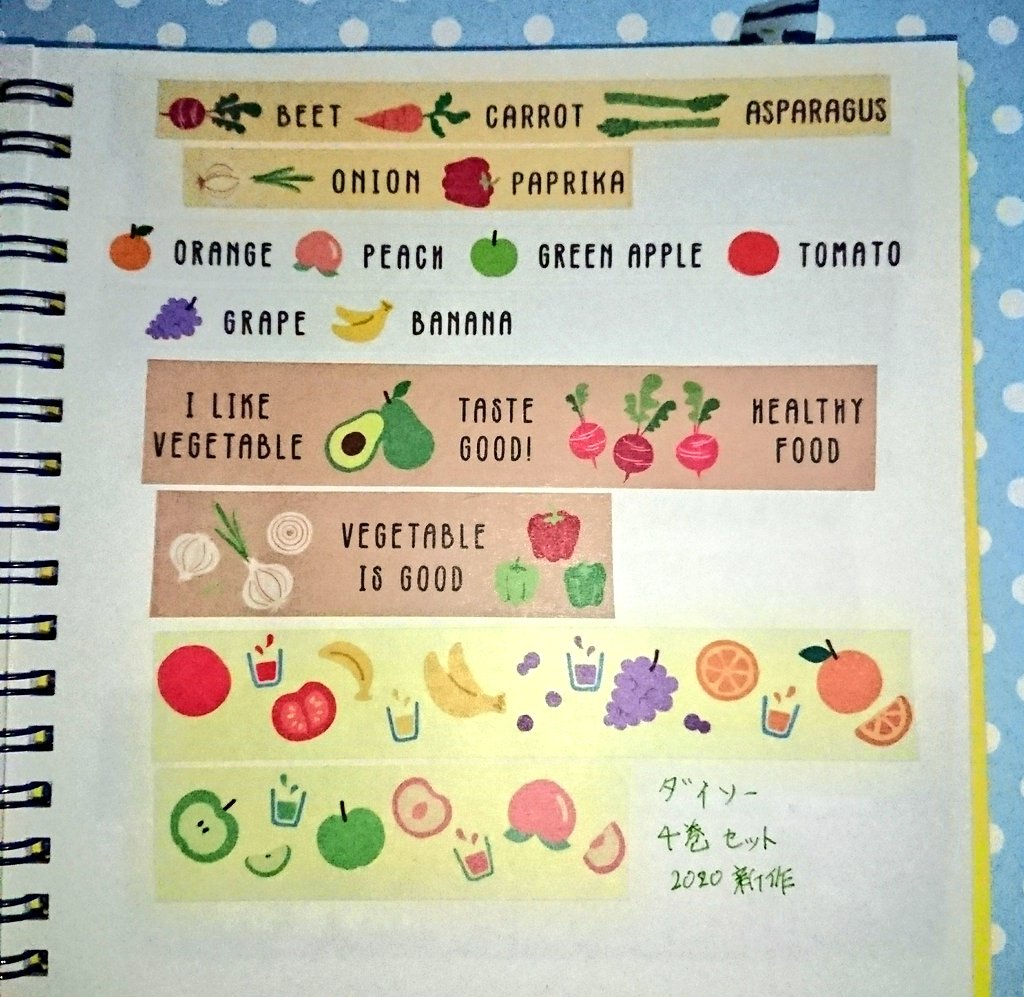 BEET CARROT ASPARAGUS
ONION PAPRIKA
ORANGE PEACH GREEN APPLE TOMATO
GRAPE BANANA
I LIKE
VEGETABLE
TASTE
GOOD!
HEALTHY
FOOD
VEGETABLE
IS GOOD
ダイソー
4巻セット
2020 新作